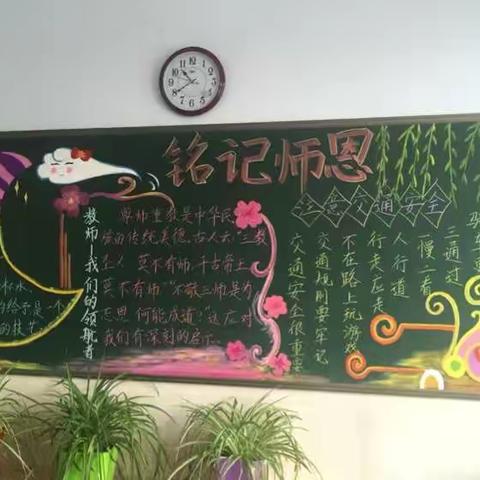 铭记师恩
教师—我们的领航者
尊师重教是中华民
族的传统美德。古人云：三教
圣人，莫不有师，千古帝王，
莫不有师。不敬三师是为
忘恩，何能成道？这应对
我们有深刻的启示。
注意交通安全
三通过
慢二看
人行道
行走应走
不在路上玩游戏
交通规则要牢记
交通安全很重要
水
的给予是一个
的技艺